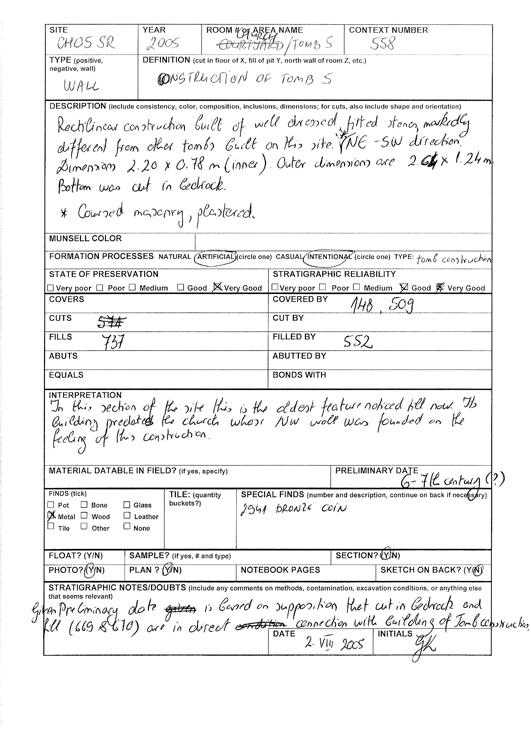 SITE
CH05 SR
YEAR
2005
ROOM # or AREA NAME
CHURCH
COURTYARD/TOMB 5
CONTEXT NUMBER
558
TYPE (positive, negative, wall)
WALL
DEFINITION (cut in floor of X, fill of pit Y, north wall of room Z, etc.)
CONSTRUCTION OF TOMB 5
DESCRIPTION (include consistency, color, composition, inclusions, dimensions; for cuts, also include shape and orientation)
Rectilinear construction built of well dressed, fitted stones, markedly
different from other tombs built on this site. NE-SW direction.
Dimensions 2.20 x 0.78 m (inner). Outer dimensions are 2.64 x 1.24 m
Bottom was cut in bedrock.
* Coursed masonry, plastered.
MUNSELL COLOR
FORMATION PROCESSES NATURAL ARTIFICIAL (circle one) CASUAL INTENTIONAL (circle one) TYPE: tomb construction
STATE OF PRESERVATION
STRATIGRAPHIC RELIABILITY
Very poor Poor Medium Good Very Good
Very poor Poor Medium Good Very Good
COVERS
COVERED BY 148, 509
CUTS 574
CUT BY
FILLS 737
FILLED BY 552
ABUTS
ABUTTED BY
EQUALS
BONDS WITH
INTERPRETATION
In this section of the site this is the oldest feature noticed till now. Its
building predated the church whose NW wall was founded on the
feeling of this construction.
MATERIAL DATABLE IN FIELD? (if yes, specify)
PRELIMINARY DATE
6-7th century (?)
FINDS (tick)
Pot Bone Glass
Metal Wood Leather
Tile Other None
TILE: (quantity buckets?)
SPECIAL FINDS (number and description, continue on back if necessary)
2941 BRONZE COIN
FLOAT? (Y/N)
SAMPLE? (if yes, # and type)
SECTION? (Y/N)
PHOTO? (Y/N)
PLAN? (Y/N)
NOTEBOOK PAGES
SKETCH ON BACK? (Y/N)
STRATIGRAPHIC NOTES/DOUBTS (include any comments on methods, contamination, excavation conditions, or anything else
that seems relevant)
Given Preliminary date given is based on supposition that cut in bedrock and
fill (669 & 670) are in direct connection with building of Tomb construction
DATE
2. VIII 2005
INITIALS
GK